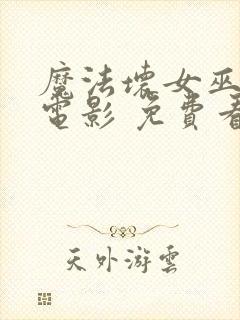 魔法壞女巫
電影 免費看
天外游雲